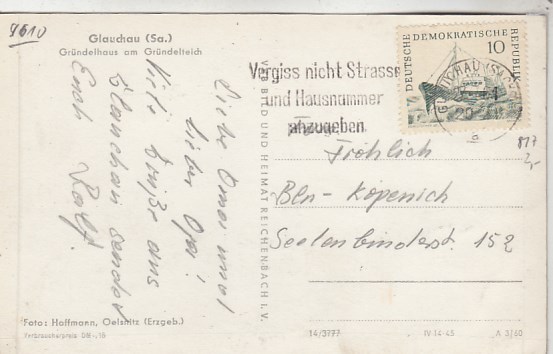 9610
Glauchau (Sa.)
Gründelhaus am Gründelteich
Liebe Oma und
lieber Opi!
Viele Grüße aus
Glauchau sendet
Euch Ralf.
Foto: Hoffmann, Oelsnitz (Erzgeb.)
Verbraucherpreis DM -,15
VEB BILD UND HEIMAT REICHENBACH I. V.
Vergiss nicht Strasse
und Hausnummer
anzugeben
DEUTSCHE DEMOKRATISCHE REPUBLIK
10
GLAUCHAU (SACHS)
a
817
2,-
Fröhlich
Bln-Köpenick
Seelenbinderst. 152
14/3777
IV-14-45
A 3/60